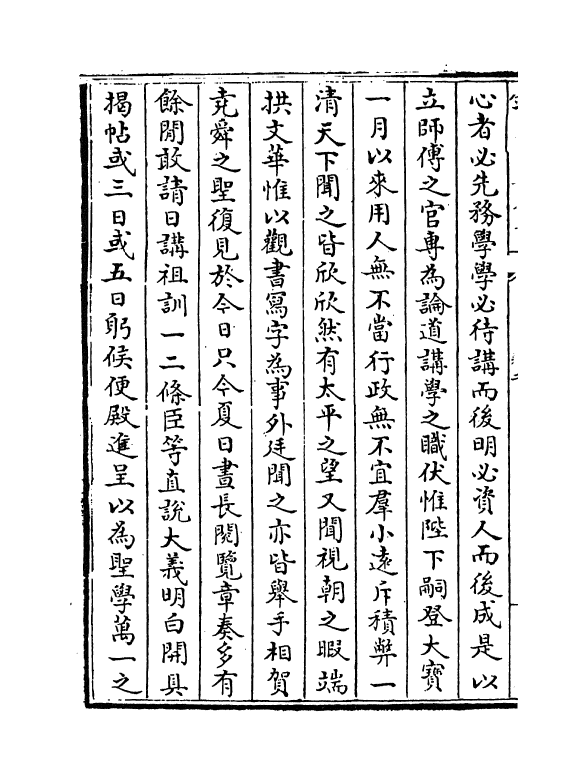 心者必先務學學必待講而後明必資人而後成是以
立師傅之官專為論道講學之職伏惟陛下嗣登大寶
一月以來用人無不當行政無不宜羣小遠斥積弊一
清天下聞之皆欣欣然有太平之望又聞視朝之暇端
拱文華惟以觀書寫字為事外廷聞之亦皆舉手相賀
堯舜之聖復見於今日只今夏日晝長閱覽章奏多有
餘閒敢請日講祖訓一二條臣等直說大義明白開具
揭帖或三日或五日躬候便殿進呈以為聖學萬一之